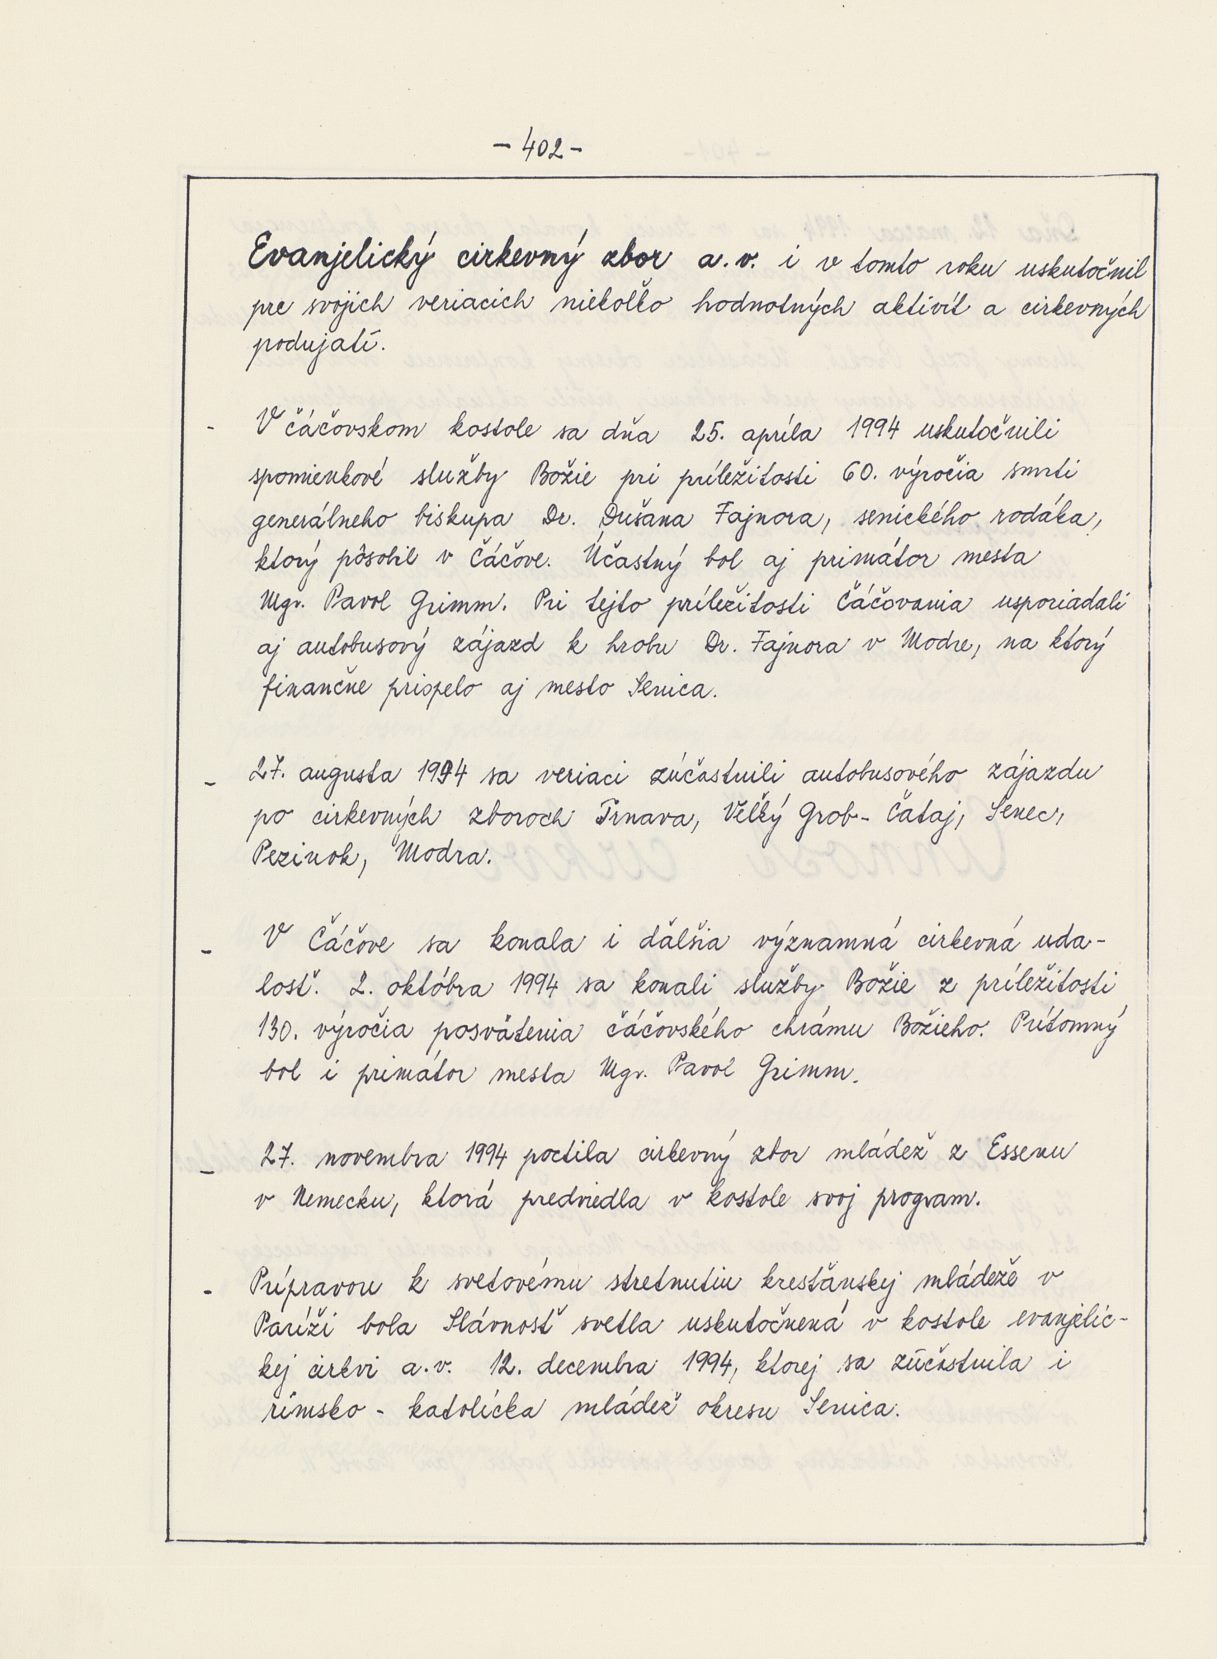 - 402 -
Evanjelický cirkevný zbor a.v. i v tomto roku uskutočnil
pre svojich veriacich niekoľko hodnotných aktivít a cirkevných
podujatí.
- V čáčovskom kostole sa dňa 25. apríla 1994 uskutočnili
spomienkové služby Božie pri príležitosti 60. výročia smrti
generálneho biskupa Dr. Dušana Fajnora, senického rodáka,
ktorý pôsobil v Čáčove. Účastný bol aj primátor mesta
Mgr. Pavol Grimm. Pri tejto príležitosti Čáčovania usporiadali
aj autobusový zájazd k hrobu Dr. Fajnora v Modre, na ktorý
finančne prispelo aj mesto Senica.
- 27. augusta 1994 sa veriaci zúčastnili autobusového zájazdu
po cirkevných zboroch Trnava, Veľký Grob - Čataj, Senec,
Pezinok, Modra.
- V Čáčove sa konala i ďalšia významná cirkevná uda-
losť. 2. októbra 1994 sa konali služby Božie z príležitosti
130. výročia posvätenia čáčovského chrámu Božieho. Prítomný
bol i primátor mesta Mgr. Pavol Grimm.
- 27. novembra 1994 poctila cirkevný zbor mládež z Essenu
v Nemecku, ktorá predviedla v kostole svoj program.
- Prípravou k svetovému stretnutiu kresťanskej mládeže v
Paríži bola Slávnosť svetla uskutočnená v kostole evanjelic-
kej cirkvi a.v. 12. decembra 1994, ktorej sa zúčastnila i
rímsko - katolícka mládež okresu Senica.